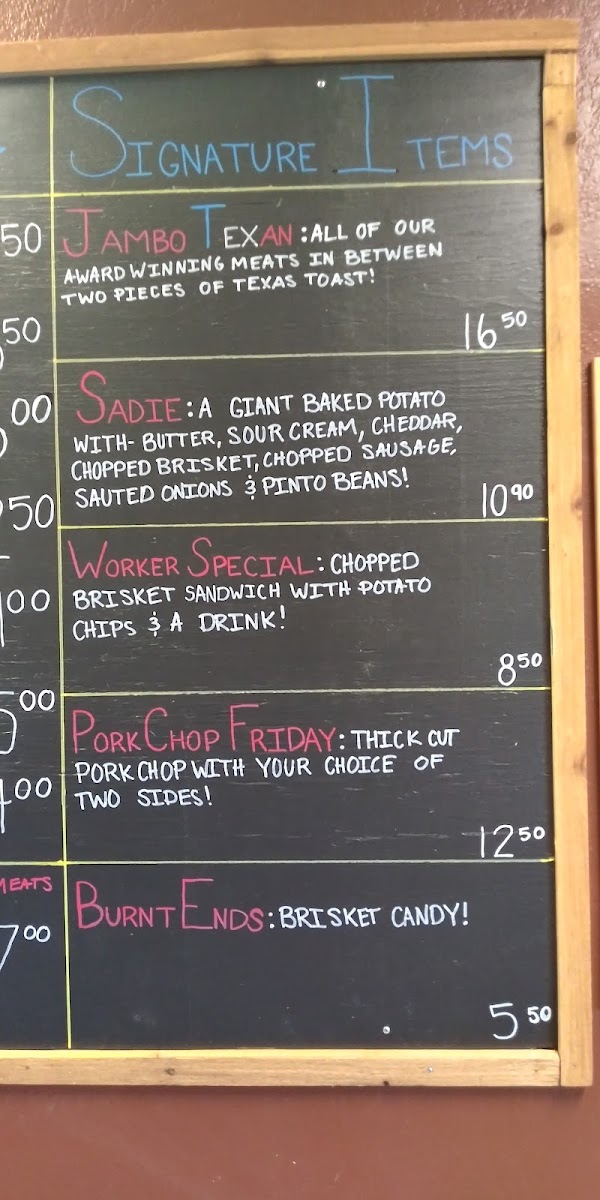 SIGNATURE ITEMS
50
JAMBO TEXAN: ALL OF OUR
AWARD WINNING MEATS IN BETWEEN
TWO PIECES OF TEXAS TOAST!
50
16 50
00
SADIE: A GIANT BAKED POTATO
WITH- BUTTER, SOUR CREAM, CHEDDAR,
CHOPPED BRISKET, CHOPPED SAUSAGE,
SAUTED ONIONS & PINTO BEANS!
50
10 90
WORKER SPECIAL: CHOPPED
BRISKET SANDWICH WITH POTATO
CHIPS & A DRINK!
00
8 50
00
PORK CHOP FRIDAY: THICK CUT
PORK CHOP WITH YOUR CHOICE OF
TWO SIDES!
00
12 50
MEATS
BURNT ENDS: BRISKET CANDY!
7 00
5 50